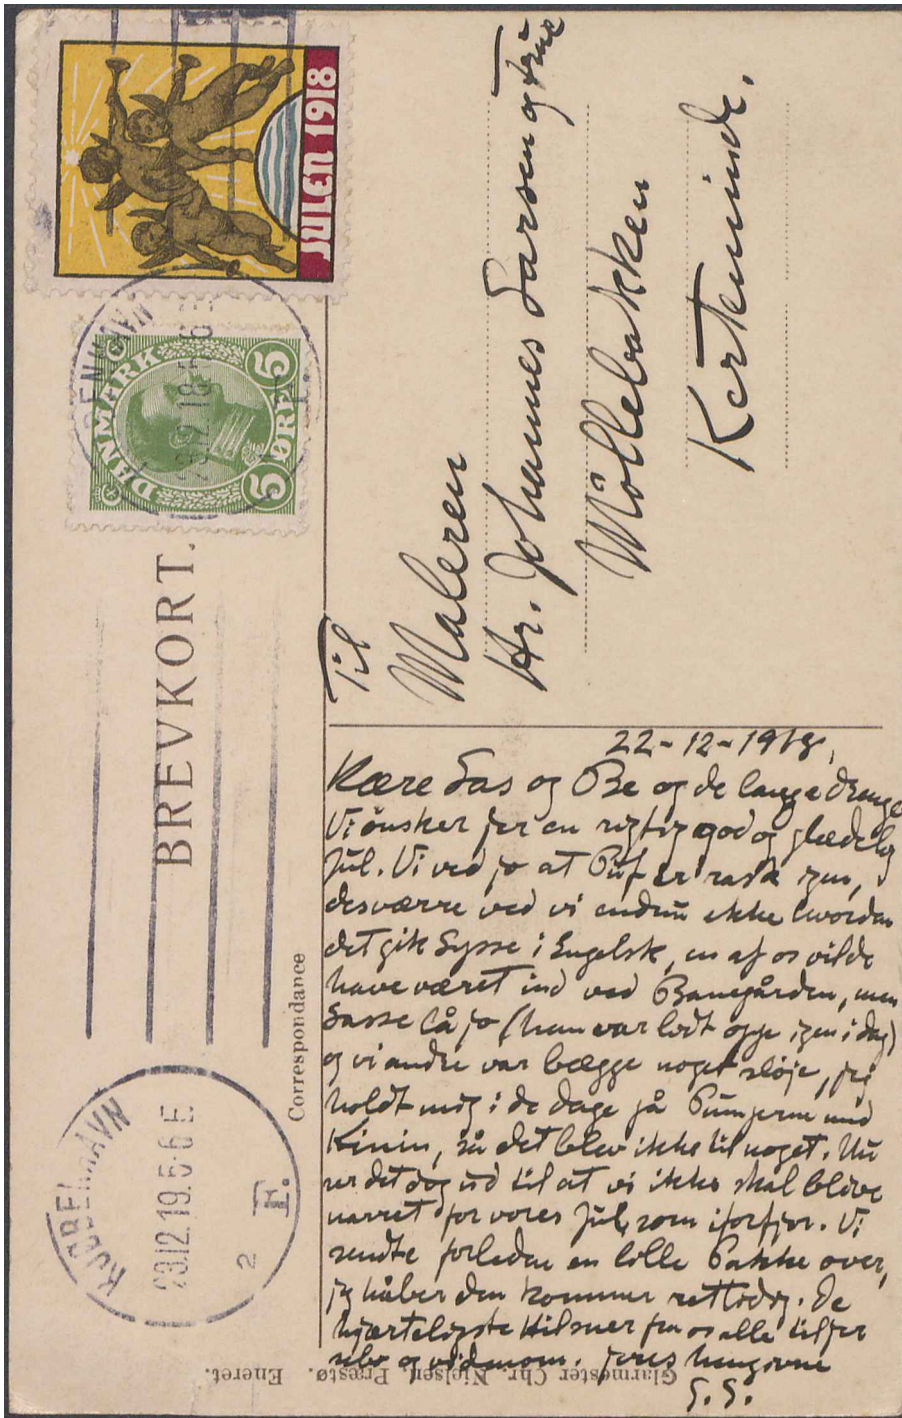 JULEN 1918
DANMARK
5 ØRE 5
KJØBENHAVN
23.12.18. 5-6 E
F.
BREVKORT.
KJØBENHAVN
23.12.19. 5-6 E
2 F.
Correspondance
Til
Maleren
Hr. Johannes Larsen og Frue
Möllebakken
Kerteminde.
22-12-1918,
Kære Las og Be og de lange drenge
Vi önsker jer en rigtig god og glædelig
Jul. Vi ved jo at Puf er rask igen,
desværre ved vi endnu ikke hvordan
det gik Lysse i Engelsk, en af os vilde
have været ind ved Banegården, men
Lasse lå jo (hun var lidt oppe igen i dag)
og vi andre var bægge noget sløje, jeg
holdt mig i de dage på Pumperne med
Kinin, så det blev ikke til noget. Nu
ser det dog ud til at vi ikke skal blive
narret for vores Jul, som iforfjor. Vi
sendte forleden en lille Pakke over,
jeg håber den kommer rettidig. De
hjærteligste Hilsner fra os alle til jer
selv og vidnom. Jeres hengivne
Glarmester Chr. Nielsen, Præstø. Eneret.